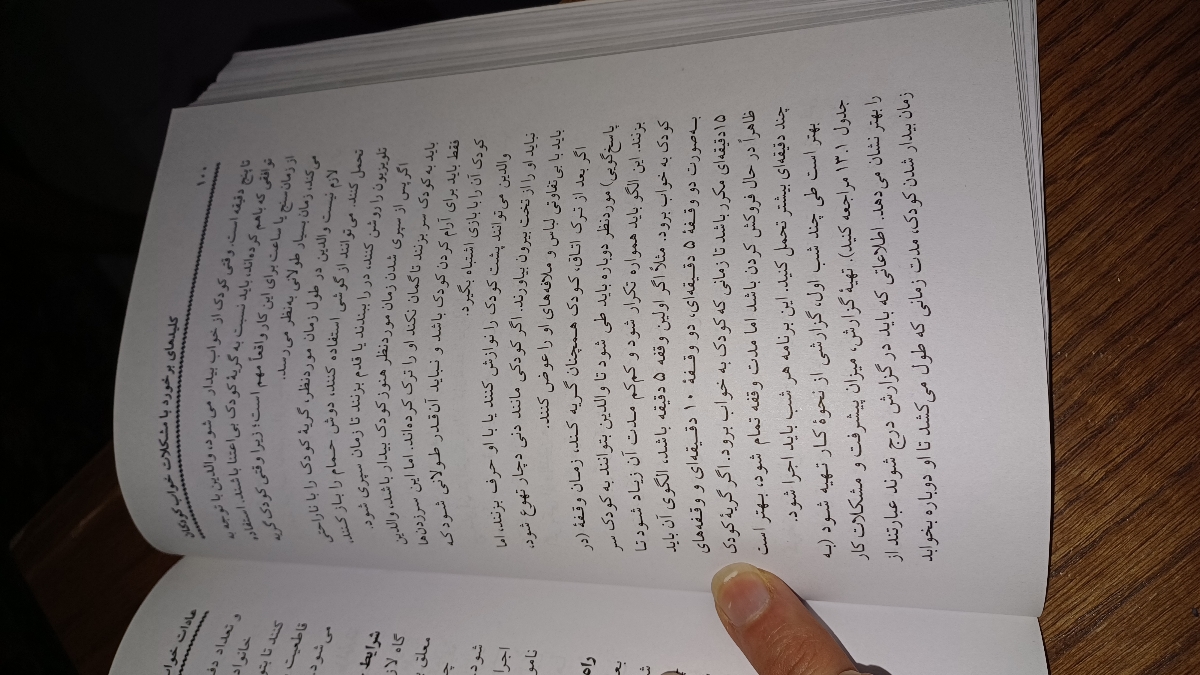 ۱۰۰ کلیدهای برخورد با مشکلات خواب کودکان
تا پنج دقیقه است. وقتی کودک از خواب بیدار می‌شود، والدین با توجه به
توافقی که باهم کرده‌اند، باید نسبت به گریهٔ کودک بی‌اعتنا باشند. استفاده
از زمان‌سنج یا ساعت برای این کار واقعاً مهم است؛ زیرا وقتی کودک گریه
می‌کند، زمان بسیار طولانی به‌نظر می‌رسد.
لازم نیست والدین در طول زمان موردنظر، گریهٔ کودک را با ناراحتی
تحمل کنند. می‌توانند از گوشی استفاده کنند، دوش حمام را باز کنند،
تلویزیون را روشن کنند، در را ببندند یا قدم بزنند تا زمان سپری شود.
اگر پس از سپری شدن زمان موردنظر هنوز کودک بیدار باشد، والدین
باید به کودک سر بزنند تا گمان نکند او را ترک کرده‌اند. اما این سرزدن‌ها
فقط باید برای آرام کردن کودک باشد و نباید آن‌قدر طولانی شود که
کودک آن را با بازی اشتباه بگیرد.
والدین می‌توانند پشت کودک را نوازش کنند یا با او حرف بزنند، اما
نباید او را از تخت بیرون بیاورند. اگر کودکی مانند دنی دچار تهوع شود،
باید با بی‌تفاوتی لباس و ملافه‌های او را عوض کنند.
اگر بعد از ترک اتاق، کودک همچنان گریه کند، زمان وقفهٔ (در
پاسخ‌گویی) موردنظر دوباره باید طی شود تا والدین بتوانند به کودک سر
بزنند. این الگو باید همواره تکرار شود و کم‌کم مدت آن زیاد شود تا
کودک به خواب برود. مثلاً اگر اولین وقفه ۵ دقیقه باشد، الگوی آن باید
به‌صورت دو وقفهٔ ۵ دقیقه‌ای، دو وقفهٔ ۱۰ دقیقه‌ای و وقفه‌های
۱۵ دقیقه‌ای مکرر باشد تا زمانی که کودک به خواب برود. اگر گریهٔ کودک
ظاهراً در حال فروکش کردن باشد اما مدت وقفه تمام شود، بهتر است
چند دقیقه‌ای بیشتر تحمل کنید. این برنامه هر شب باید اجرا شود.
بهتر است طی چند شب اول، گزارشی از نحوهٔ کار تهیه شود (به
جدول ۱۳.۱ مراجعه کنید). تهیهٔ گزارش، میزان پیشرفت و مشکلات کار
را بهتر نشان می‌دهد. اطلاعاتی که باید در گزارش درج شوند عبارتند از
زمان بیدار شدن کودک، مدت زمانی که طول می‌کشد تا او دوباره بخوابد
عادات خواب
و تعداد دف
خانواد
کنند تا بتو
قاطعیت
می‌شود.
شرایط
گاه لاز
معلق
چ
شود.
اجرا
نامو
را
بع